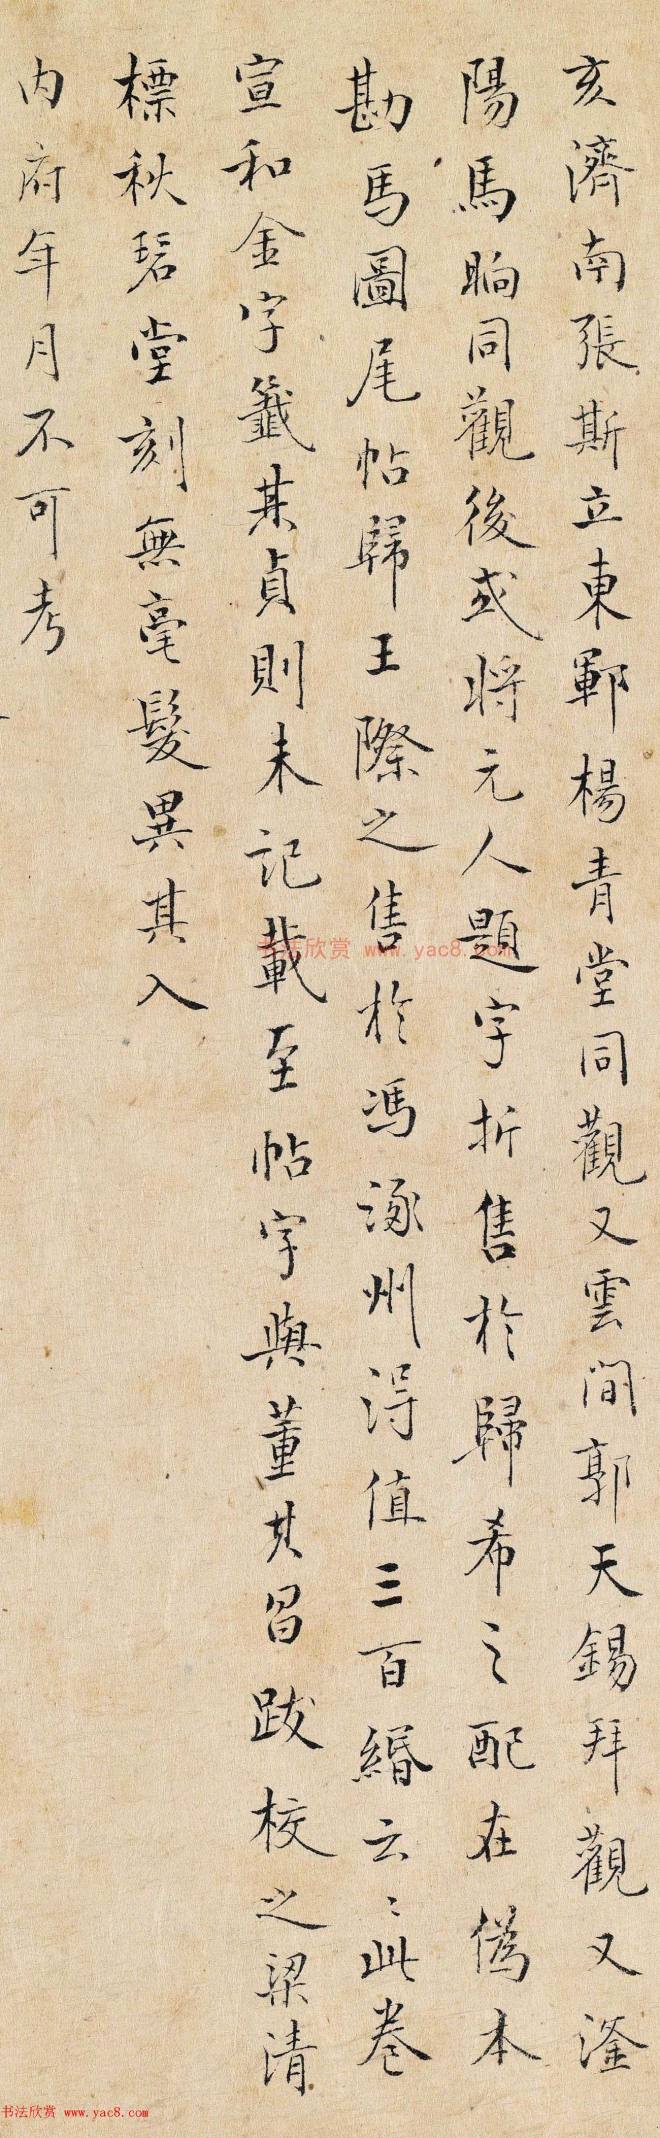 亥濟南張斯立東鄆楊青堂同觀又雲間郭天錫拜觀又滏
陽馬晌同觀後或將元人題字折售於歸希之配在偽本
勘馬圖尾帖歸王際之售於馮涿州得值三百緡云〻此卷
宣和金字籤其貞則未記載至帖字與董其昌跋校之梁清
標秋碧堂刻無毫髮異其入
内府年月不可考
书法欣赏 www.yac8.com
书法欣赏 www.yac8.com